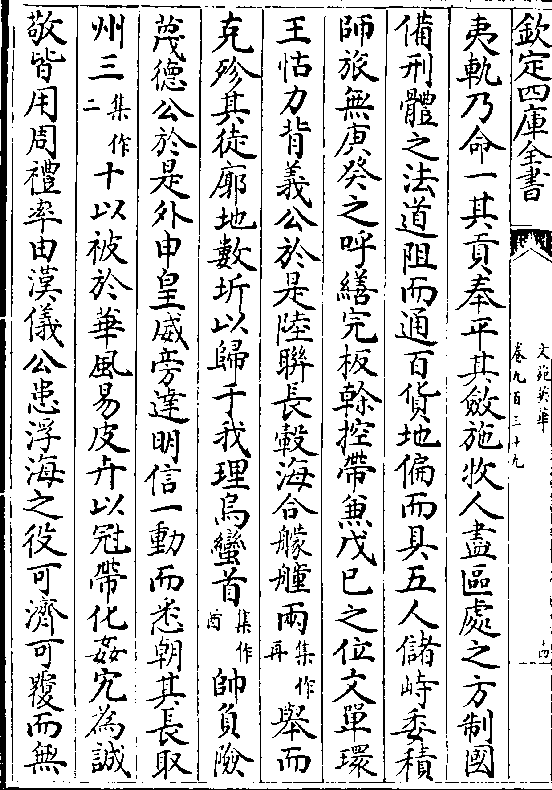 欽定四庫全書
文苑英華
卷九百三十九
十四
夷軌乃命一其貢奉平其斂施牧人盡區處之方制國
備刑體之法道阻而通百貨地偏而具五人儲峙委積
師旅無庚癸之呼繕完板榦控帶兼戊已之位文單環
王怙力背義公於是陸聯長轂海合艨艟兩集作再舉而
克殄其徒廓地數圻以歸于我理烏蠻首集作酋帥負險
蔑德公於是外申皇威旁達明信一動而悉朝其長取
州三集作二十以被於華風易皮弁以冠帶化姦宄為誠
敬皆用周禮率由漢儀公患浮海之役可濟可覆而無